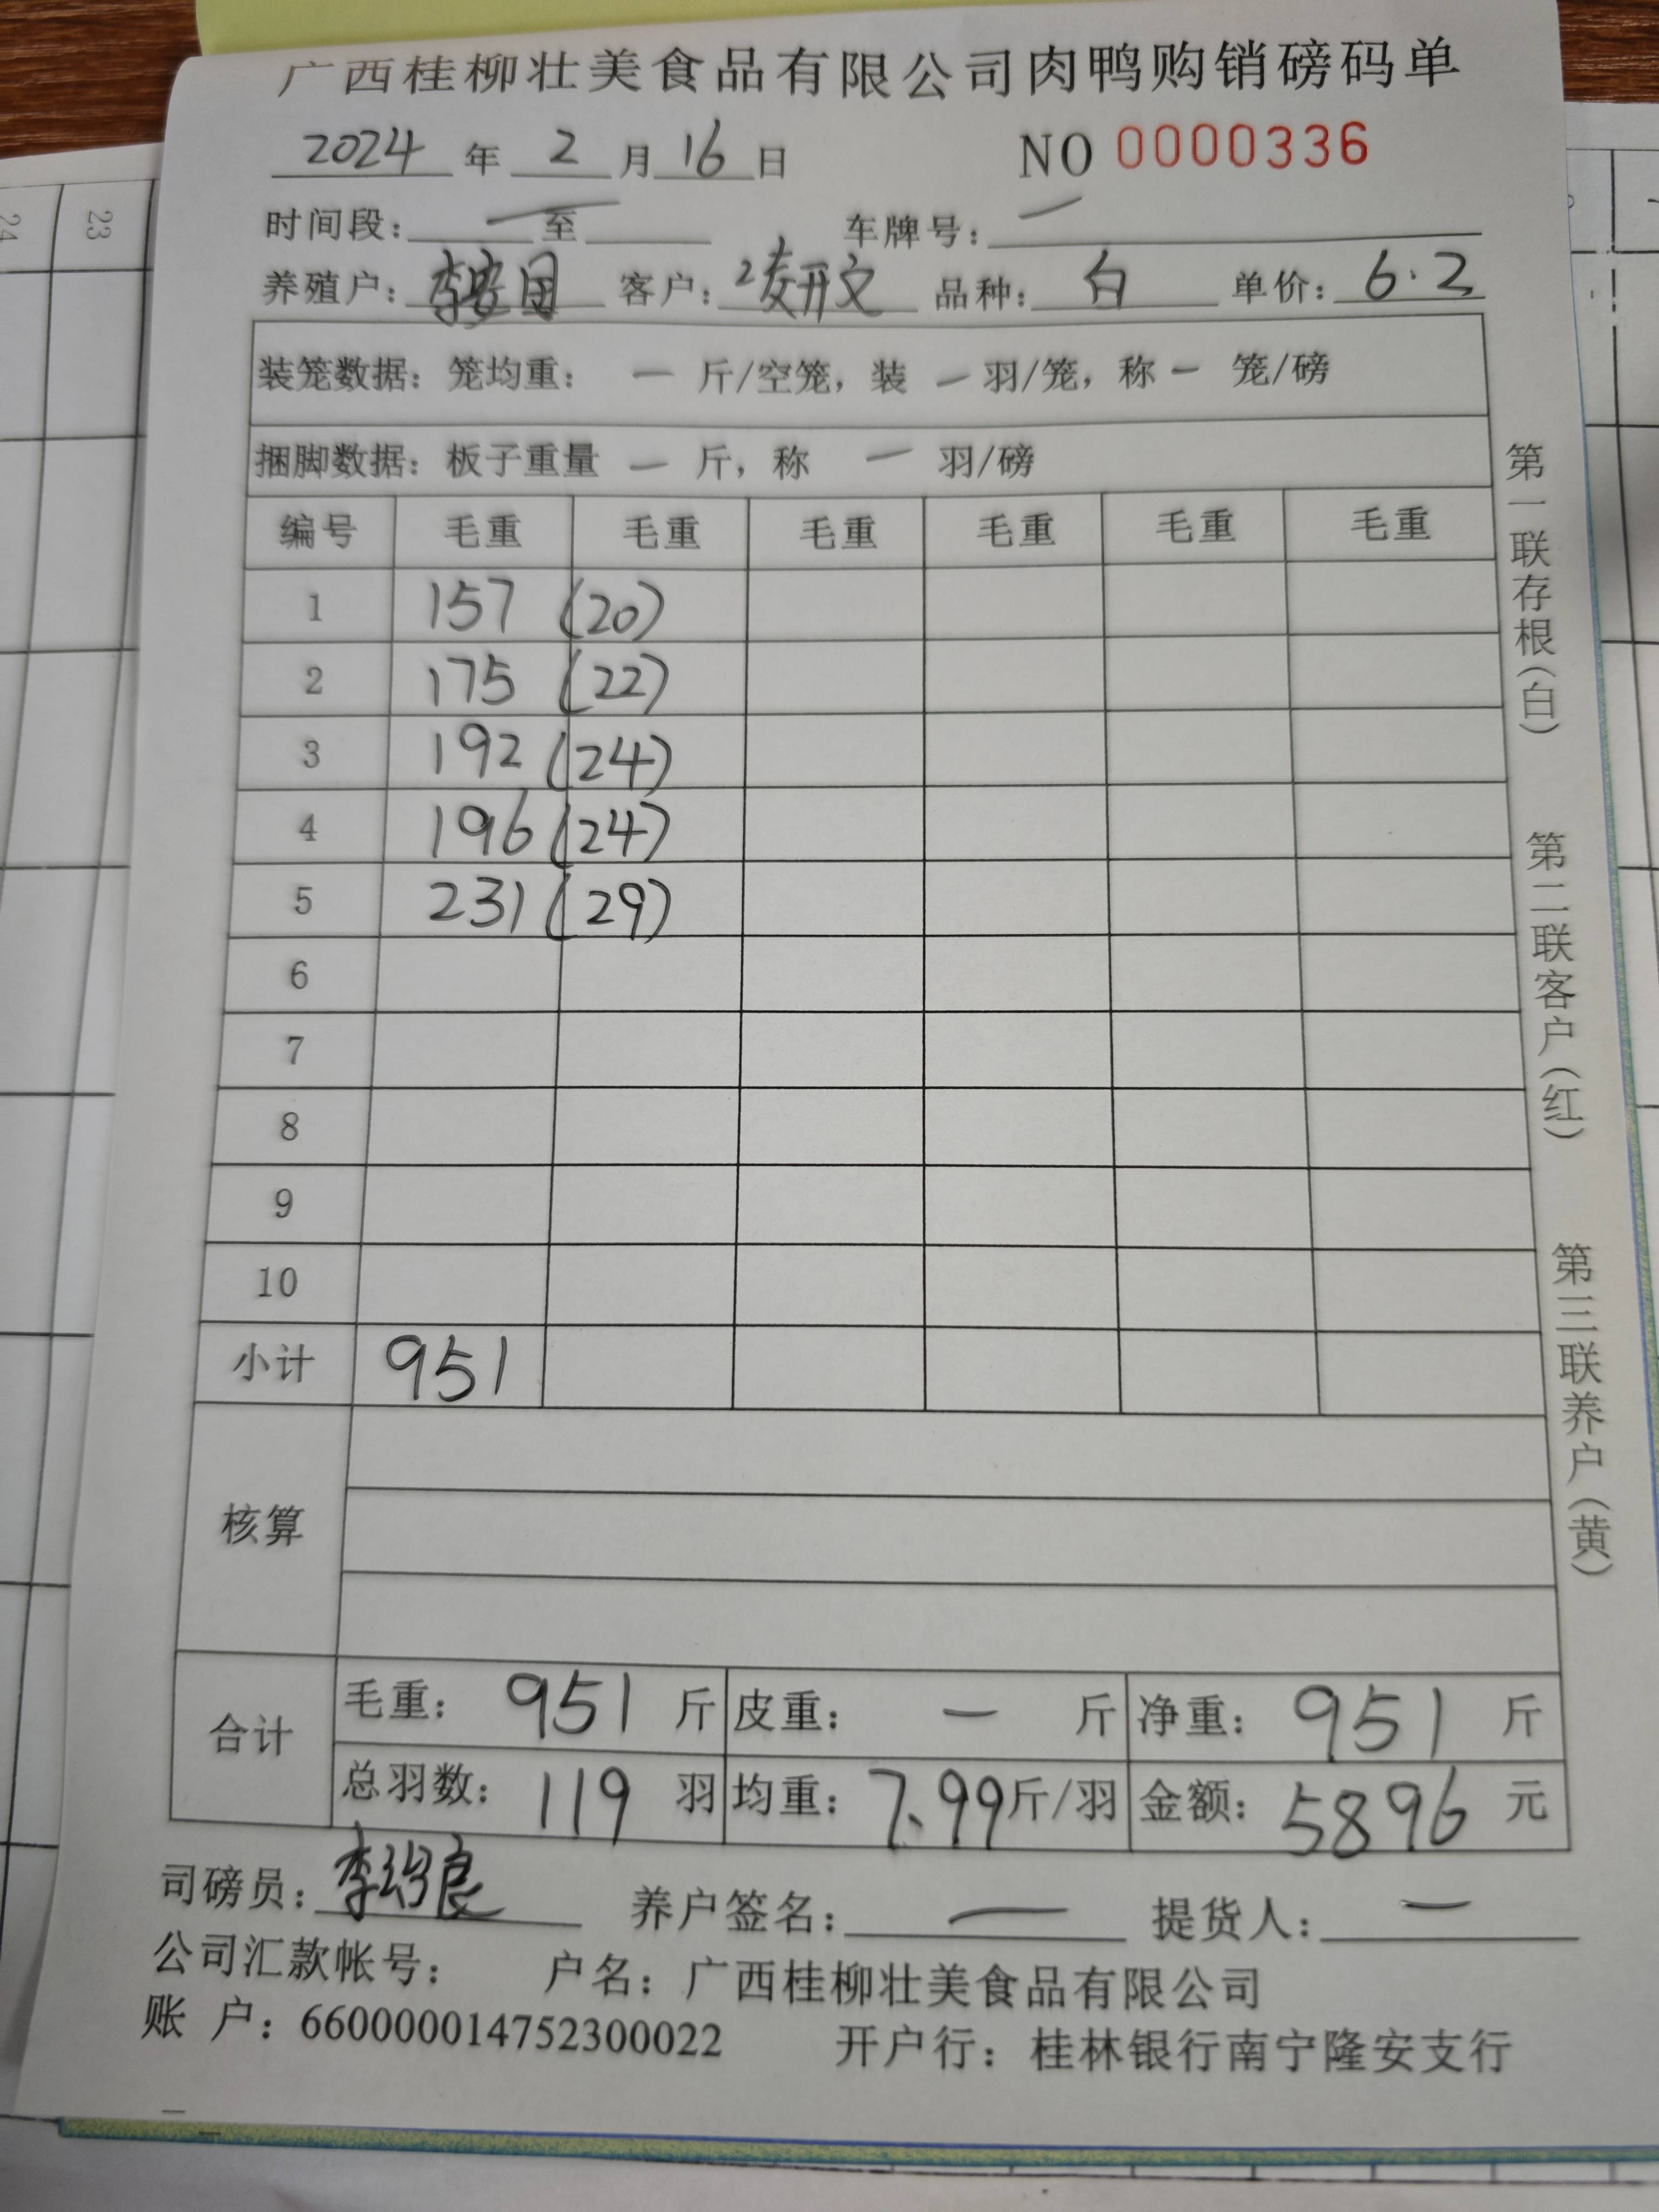 广西桂柳壮美食品有限公司肉鸭购销磅码单
2024 年 2 月 16 日 NO 0000336
时间段: 一 至 车牌号: 一
养殖户: 李安国 客户: 凌开文 品种: 白 单价: 6.2
装笼数据: 笼均重: 一 斤/空笼, 装 一 羽/笼, 称 一 笼/磅
捆脚数据: 板子重量 一 斤, 称 一 羽/磅
编号 毛重 毛重 毛重 毛重 毛重 毛重
1 157 (20)
2 175 (22)
3 192 (24)
4 196 (24)
5 231 (29)
6
7
8
9
10
小计 951
核算
合计
毛重: 951 斤 皮重: 一 斤 净重: 951 斤
总羽数: 119 羽 均重: 7.99 斤/羽 金额: 5896 元
司磅员: 李绍良 养户签名: 一 提货人: 一
公司汇款帐号: 户名: 广西桂柳壮美食品有限公司
账 户: 660000014752300022 开户行: 桂林银行南宁隆安支行
第一联存根(白)
第二联客户(红)
第三联养户(黄)
24
23